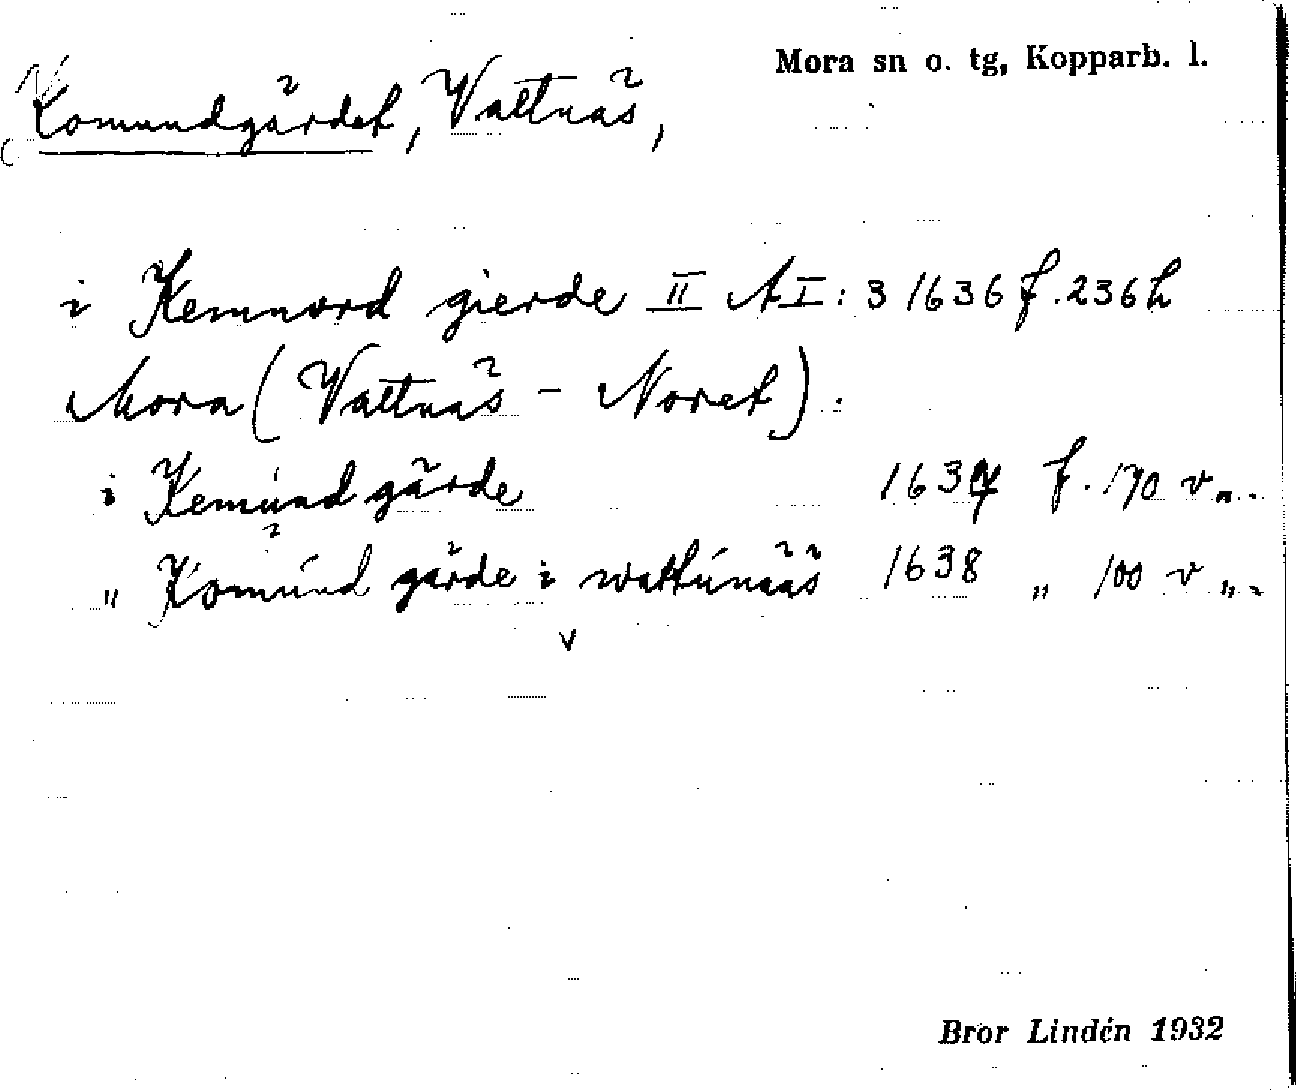 Mora sn o. tg, Kopparb. l.
Komundgärdet, Vattnäs,
i Kemnord gierde II A I: 3 1636 f. 236 h
Mora (Vattnäs - Noret).
i Kemúnd gärde 1637 f. 170 v „.
„ Komúnd gärde i wattúnääs 1638 „ 100 v „.
v
Bror Lindén 1932